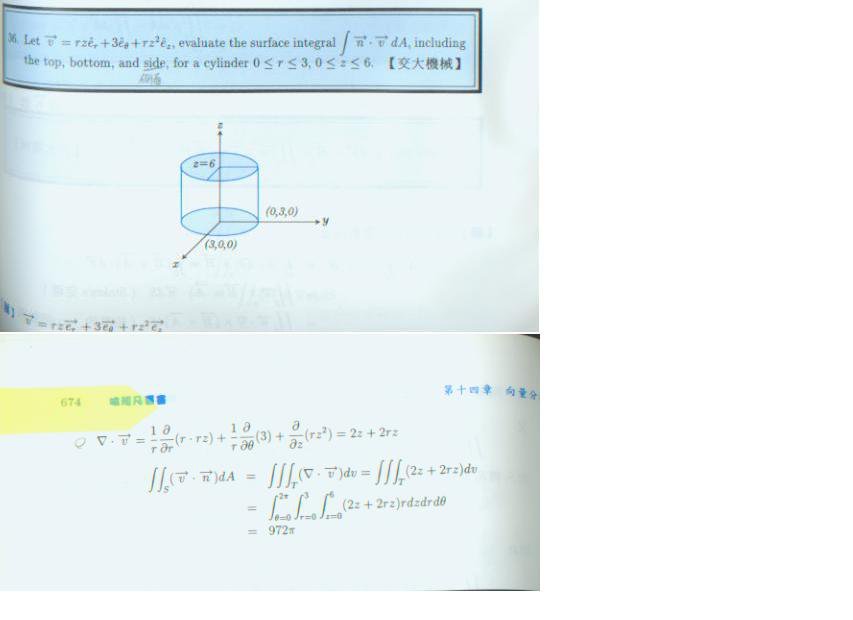 36. Let $\vec{v} = rz\hat{e}_r + 3\hat{e}_\theta + rz^2\hat{e}_z$, evaluate the surface integral $\int \vec{n} \cdot \vec{v} \, dA$, including
the top, bottom, and side, for a cylinder $0 \leq r \leq 3, 0 \leq z \leq 6$. 【交大機械】
z
z=6
(0,3,0)
y
(3,0,0)
x
$\vec{v} = rz\vec{e}_r + 3\vec{e}_\theta + rz^2\vec{e}_z$
第十四章 向量分
674
$\nabla \cdot \vec{v} = \frac{1}{r}\frac{\partial}{\partial r}(r \cdot rz) + \frac{1}{r}\frac{\partial}{\partial \theta}(3) + \frac{\partial}{\partial z}(rz^2) = 2z + 2rz$
$\iint_S (\vec{v} \cdot \vec{n})dA = \iiint_T (\nabla \cdot \vec{v})dv = \iiint_T (2z + 2rz)dv$
$= \int_{\theta=0}^{2\pi} \int_{r=0}^{3} \int_{z=0}^{6} (2z + 2rz)rdzdrd\theta$
$= 972\pi$